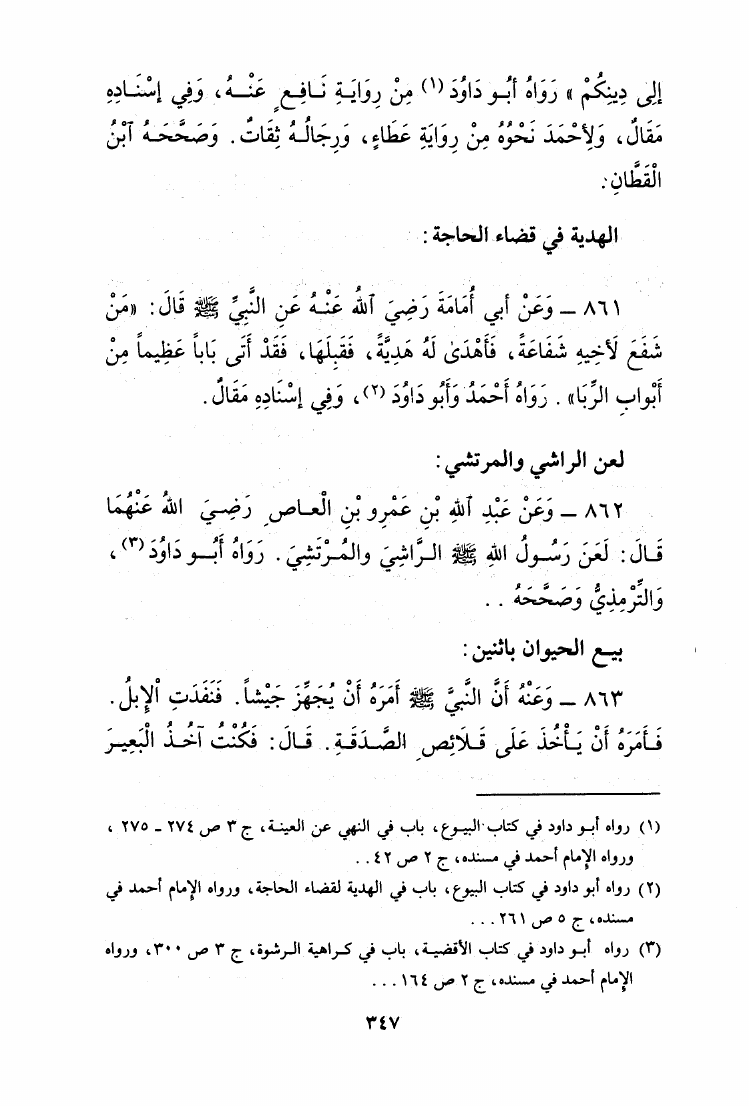 إِلى دِينِكُمْ » رَوَاهُ أَبُو دَاوُدَ (١) مِنْ رِوَايَةِ نَافِعٍ عَنْهُ، وَفِي إِسْنَادِهِ
مَقَالٌ، وَلِأَحْمَدَ نَحْوُهُ مِنْ رِوَايَةِ عَطَاءٍ، وَرِجَالُهُ ثِقَاتٌ. وَصَحَّحَهُ ٱبْنُ
الْقَطَّانِ.
الهدية في قضاء الحاجة:
٨٦١ ــ وَعَنْ أَبي أُمَامَةَ رَضِيَ ٱللهُ عَنْهُ عَنِ النَّبِيِّ ﷺ قَالَ: «مَنْ
شَفَعَ لَأخِيهِ شَفَاعَةً، فَأَهْدَىٰ لَهُ هَدِيَّةً، فَقَبِلَهَا، فَقَدْ أَتَى بَاباً عَظِيماً مِنْ
أَبْوابِ الرِّبَا». رَوَاهُ أَحْمَدُ وَأَبُو دَاوُدَ (٢)، وَفِي إِسْنَادِهِ مَقَالٌ.
لعن الراشي والمرتشي:
٨٦٢ ــ وَعَنْ عَبْدِ ٱللهِ بْنِ عَمْرِو بْنِ الْعاصِ رَضِيَ اللهُ عَنْهُمَا
قَالَ: لَعَنَ رَسُولُ اللهِ ﷺ الرَّاشِيَ والمُرْتَشِيَ. رَوَاهُ أَبُو دَاوُدَ (٣)،
وَالتِّرْمِذِيُّ وَصَحَّحَهُ ..
بيع الحيوان باثنين:
٨٦٣ ــ وَعَنْهُ أَنَّ النَّبِيَّ ﷺ أَمَرَهُ أَنْ يُجَهِّزَ جَيْشاً. فَنَفَدَتِ ٱلإِبلُ.
فَأَمَرَهُ أَنْ يَأْخُذَ عَلَى قَلَائِصِ الصَّدَقَةِ. قَالَ: فَكُنْتُ آخُذُ الْبَعِيرَ
(١) رواه أبو داود في كتاب البيوع، باب في النهي عن العينة، ج ٣ ص ٢٧٤ ــ ٢٧٥ ،
ورواه الإمام أحمد في مسنده، ج ٢ ص ٤٢ ..
(٢) رواه أبو داود في كتاب البيوع، باب في الهدية لقضاء الحاجة، ورواه الإمام أحمد في
مسنده، ج ٥ ص ٢٦١ ...
(٣) رواه أبو داود في كتاب الأقضية، باب في كراهية الرشوة، ج ٣ ص ٣٠٠، ورواه
الإمام أحمد في مسنده، ج ٢ ص ١٦٤ ...
٣٤٧